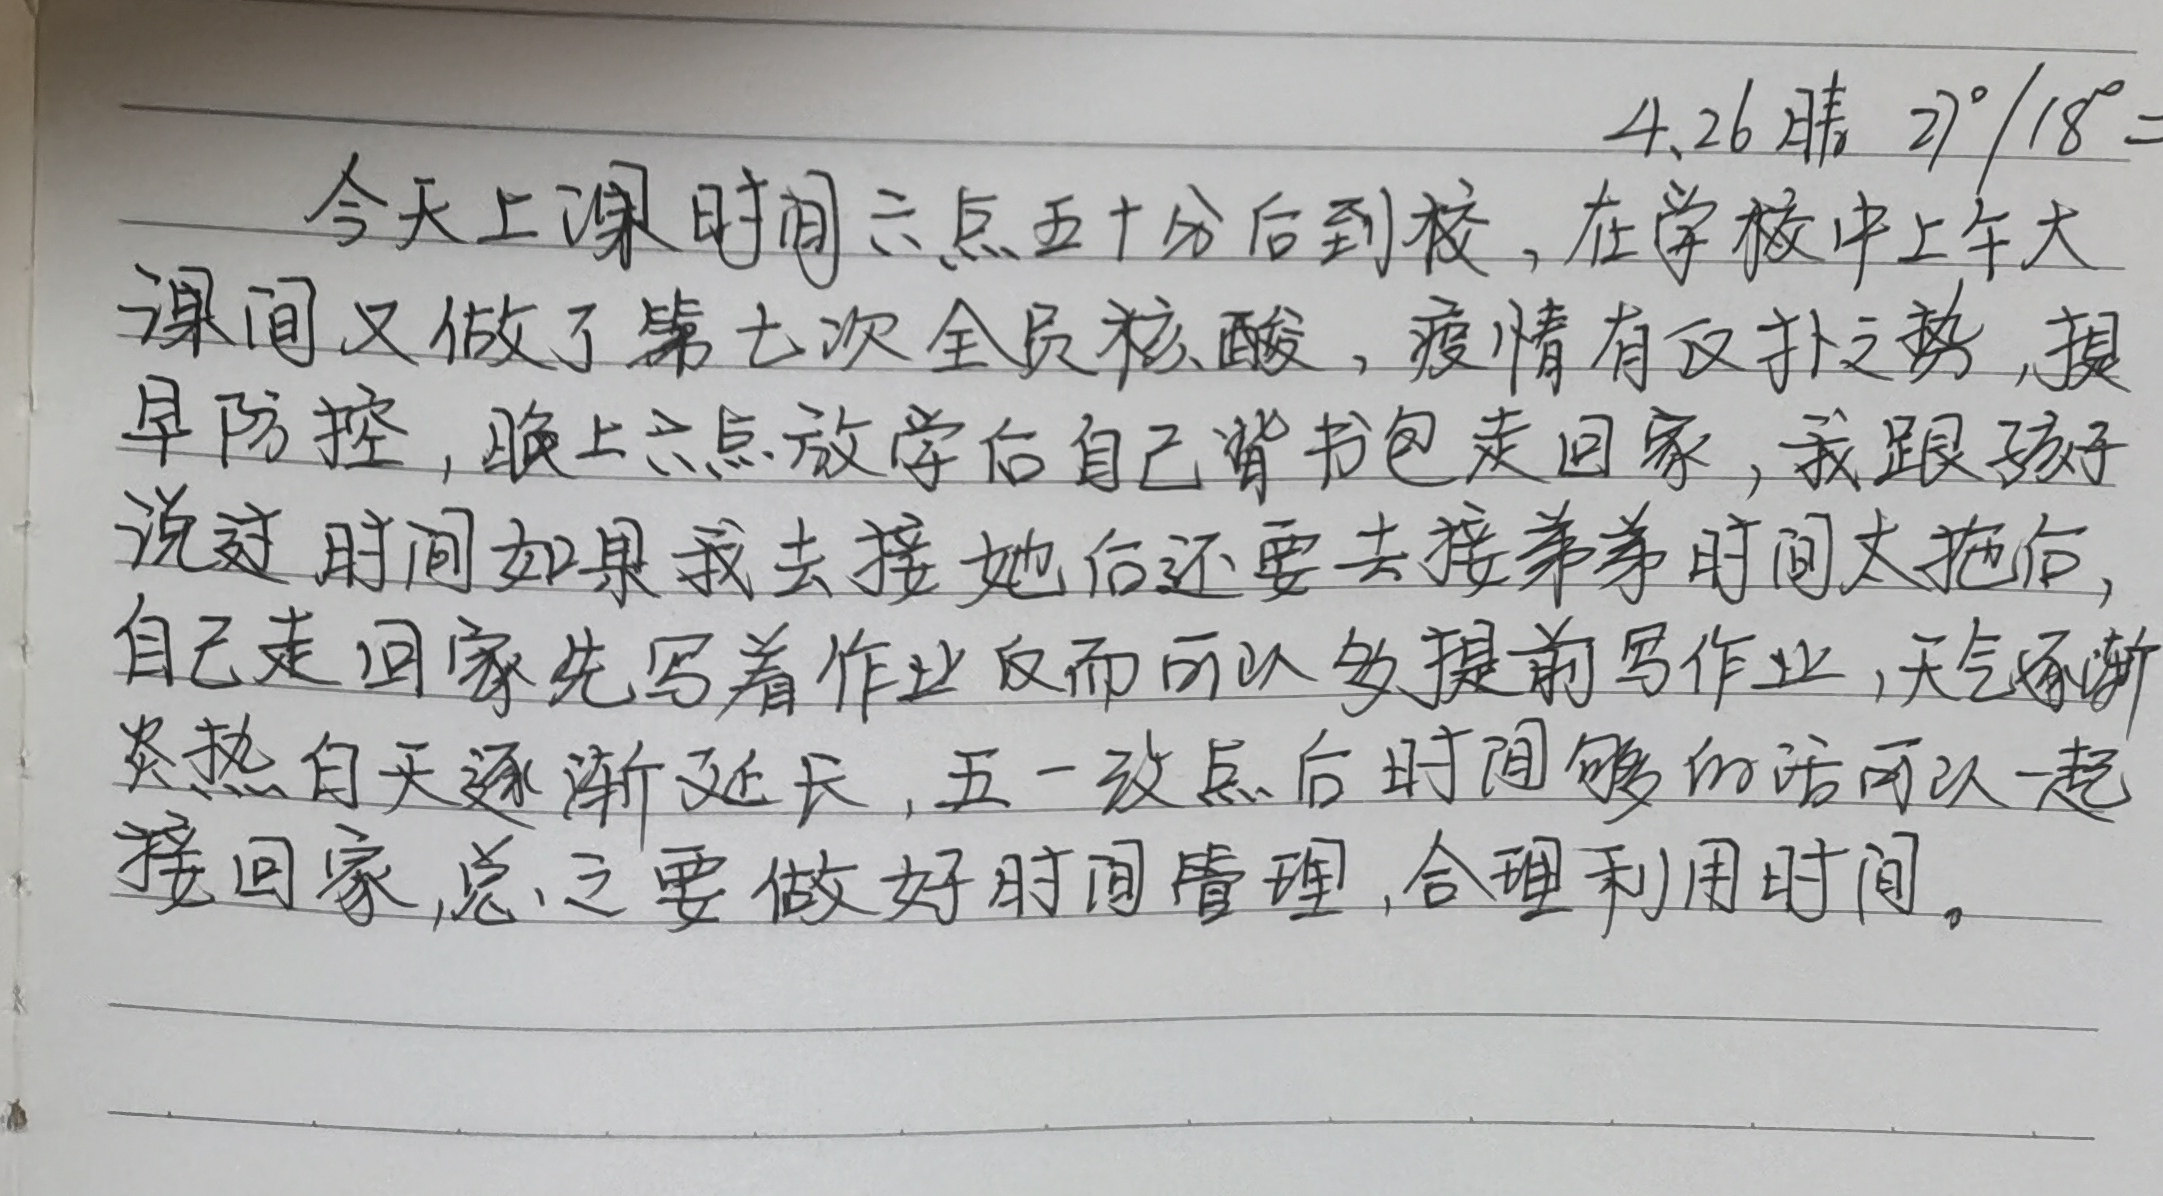 4.26晴 27°/18° 二
今天上课时间六点五十分后到校，在学校中上午大
课间又做了第七次全员核酸，疫情有反扑之势，提
早防控，晚上六点放学后自己背书包走回家，我跟孩子
说过时间如果我去接她后还要去接弟弟时间太拖后，
自己走回家先写着作业反而可以多提前写作业，天气逐渐
炎热白天逐渐延长，五一改点后时间够的话可以一起
接回家，总之要做好时间管理，合理利用时间。